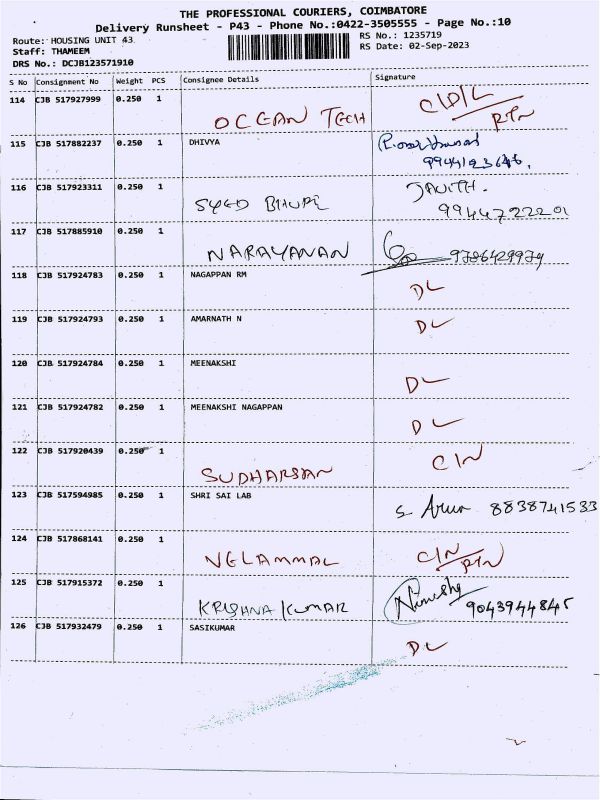 THE PROFESSIONAL COURIERS, COIMBATORE
Delivery Runsheet - P43 - Phone No.:0422-3505555 - Page No.:10
Route: HOUSING UNIT 43
RS No.: 1235719
Staff: THAMEEM
RS Date: 02-Sep-2023
DRS No.: DCJB123571910
S No Consignment No Weight PCS Consignee Details Signature
114 CJB 517927999 0.250 1 OCEAN TECH C/D/L RTN
115 CJB 517882237 0.250 1 DHIVYA
116 CJB 517923311 0.250 1 SYED JAVITH.
9944722201
117 CJB 517885910 0.250 1 NARAYANAN 9786429979
118 CJB 517924783 0.250 1 NAGAPPAN RM DL
119 CJB 517924793 0.250 1 AMARNATH N DL
120 CJB 517924784 0.250 1 MEENAKSHI DL
121 CJB 517924782 0.250 1 MEENAKSHI NAGAPPAN DL
122 CJB 517920439 0.250 1 SUDHARSAN C/N
123 CJB 517594985 0.250 1 SHRI SAI LAB S Arun 8838741533
124 CJB 517868141 0.250 1 C/N RTN
125 CJB 517915372 0.250 1 KRISHNA KUMAR 9043944845
126 CJB 517932479 0.250 1 SASIKUMAR DL